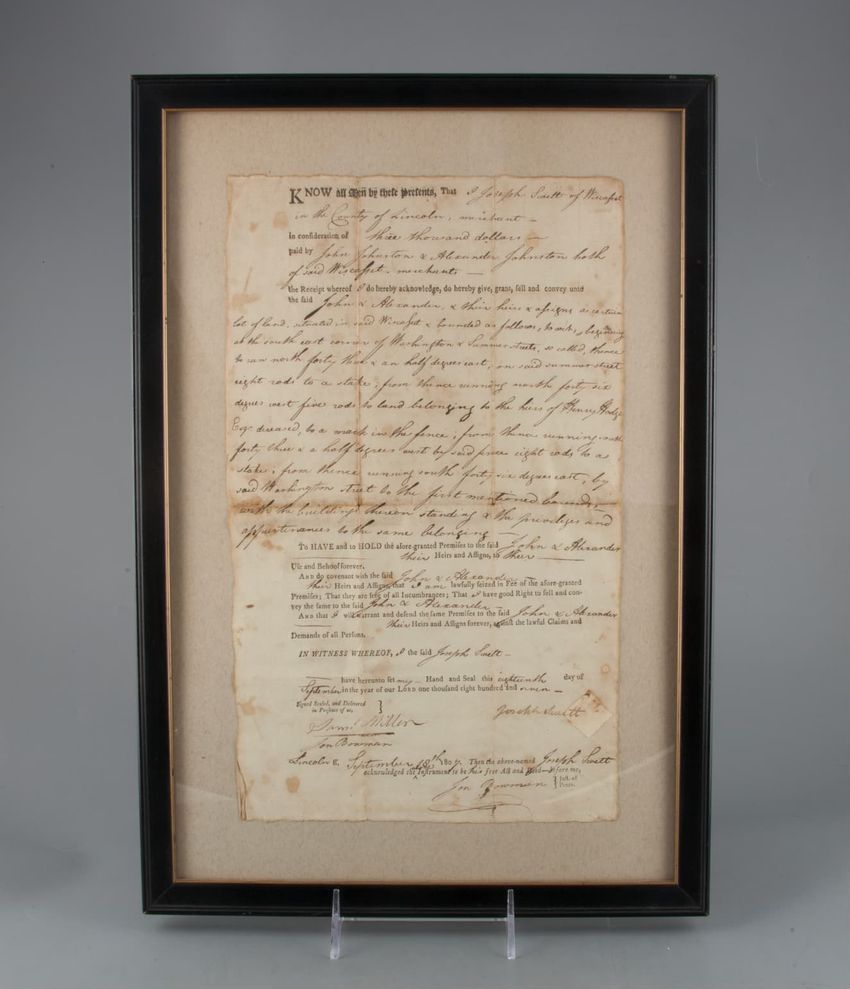 KNOW all Men by these Presents, That I Joseph Swett of Wiscasset
in the County of Lincoln, merchant —
In confideration of three thousand dollars —
paid by John Johnston & Alexander Johnston both
of said Wiscasset, merchants —
the Receipt whereof I do hereby acknowledge, do hereby give, grant, fell and convey unto
the faid John & Alexander, & their heirs & assigns a certain
lot of land, situated in said Wiscasset & bounded as follows, to wit, beginning
at the south east corner of Washington & Summer streets, so called, thence
to run north forty three & an half degrees east, on said summer street
eight rods to a stake; from thence running north forty six
degrees west five rods to land belonging to the heirs of Henry Hodge
Esqr. deceased, to a mark in the fence; from thence running south
forty three & a half degrees west by said fence eight rods to a
stake; from thence running south forty six degrees east, by
said Washington street to the first mentioned bounds, —
with the buildings thereon standing & the privileges and
appurtenances to the same belonging —
To HAVE and to HOLD the afore-granted Premifes to the faid John & Alexander
their Heirs and Affigns, to their
Ufe and Behoof forever.
AND do covenant with the faid John & Alexander —
their Heirs and Affigns, that I am lawfully feized in Fee of the afore-granted
Premifes; That they are free of all Incumbrances; That I have good Right to fell and con-
vey the fame to the faid John & Alexander —
AND that I will warrant and defend the fame Premifes to the faid John & Alexander
their Heirs and Affigns forever, againft the lawful Claims and
Demands of all Perfons.
IN WITNESS WHEREOF, I the faid Joseph Swett —
have hereunto fet my — Hand and Seal this eighteenth day of
September in the year of our LORD one thoufand eight hundred and seven —
Signed Sealed, and Delivered
in Prefence of us,
Saml. Miller
Jon Bowman
Joseph Swett
Lincoln ſſ. September 18th 1807. Then the above-named Joseph Swett
acknowledged the Inftrument to be his free Act and Deed—before me,
Jon Bowman Juft. of
Peace.